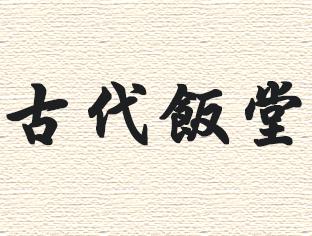 古代飯堂